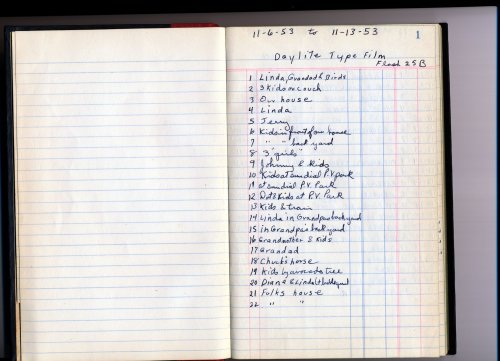 11-6-53 to 11-13-53
1
Daylite Type Film
Flash 25B
1 Linda, Grandad & Birds
2 3 Kids on couch
3 Our house
4 Linda
5 Jerry
6 Kids in front of our house
7 " " back yard
8 3 "girls"
9 Johnny & Kids
10 Kids at sundial P.V. park
11 at sundial P.V. Park
12 Dot & Kids at P.V. Park
13 Kids & train
14 Linda in Grandpas back yard
15 in Grandpa's back yard
16 Grandmother & Kids
17 Grandad
18 Chuck's horse
19 Kids by avocado tree
20 Diane & Linda
21 Folks house
22 " "